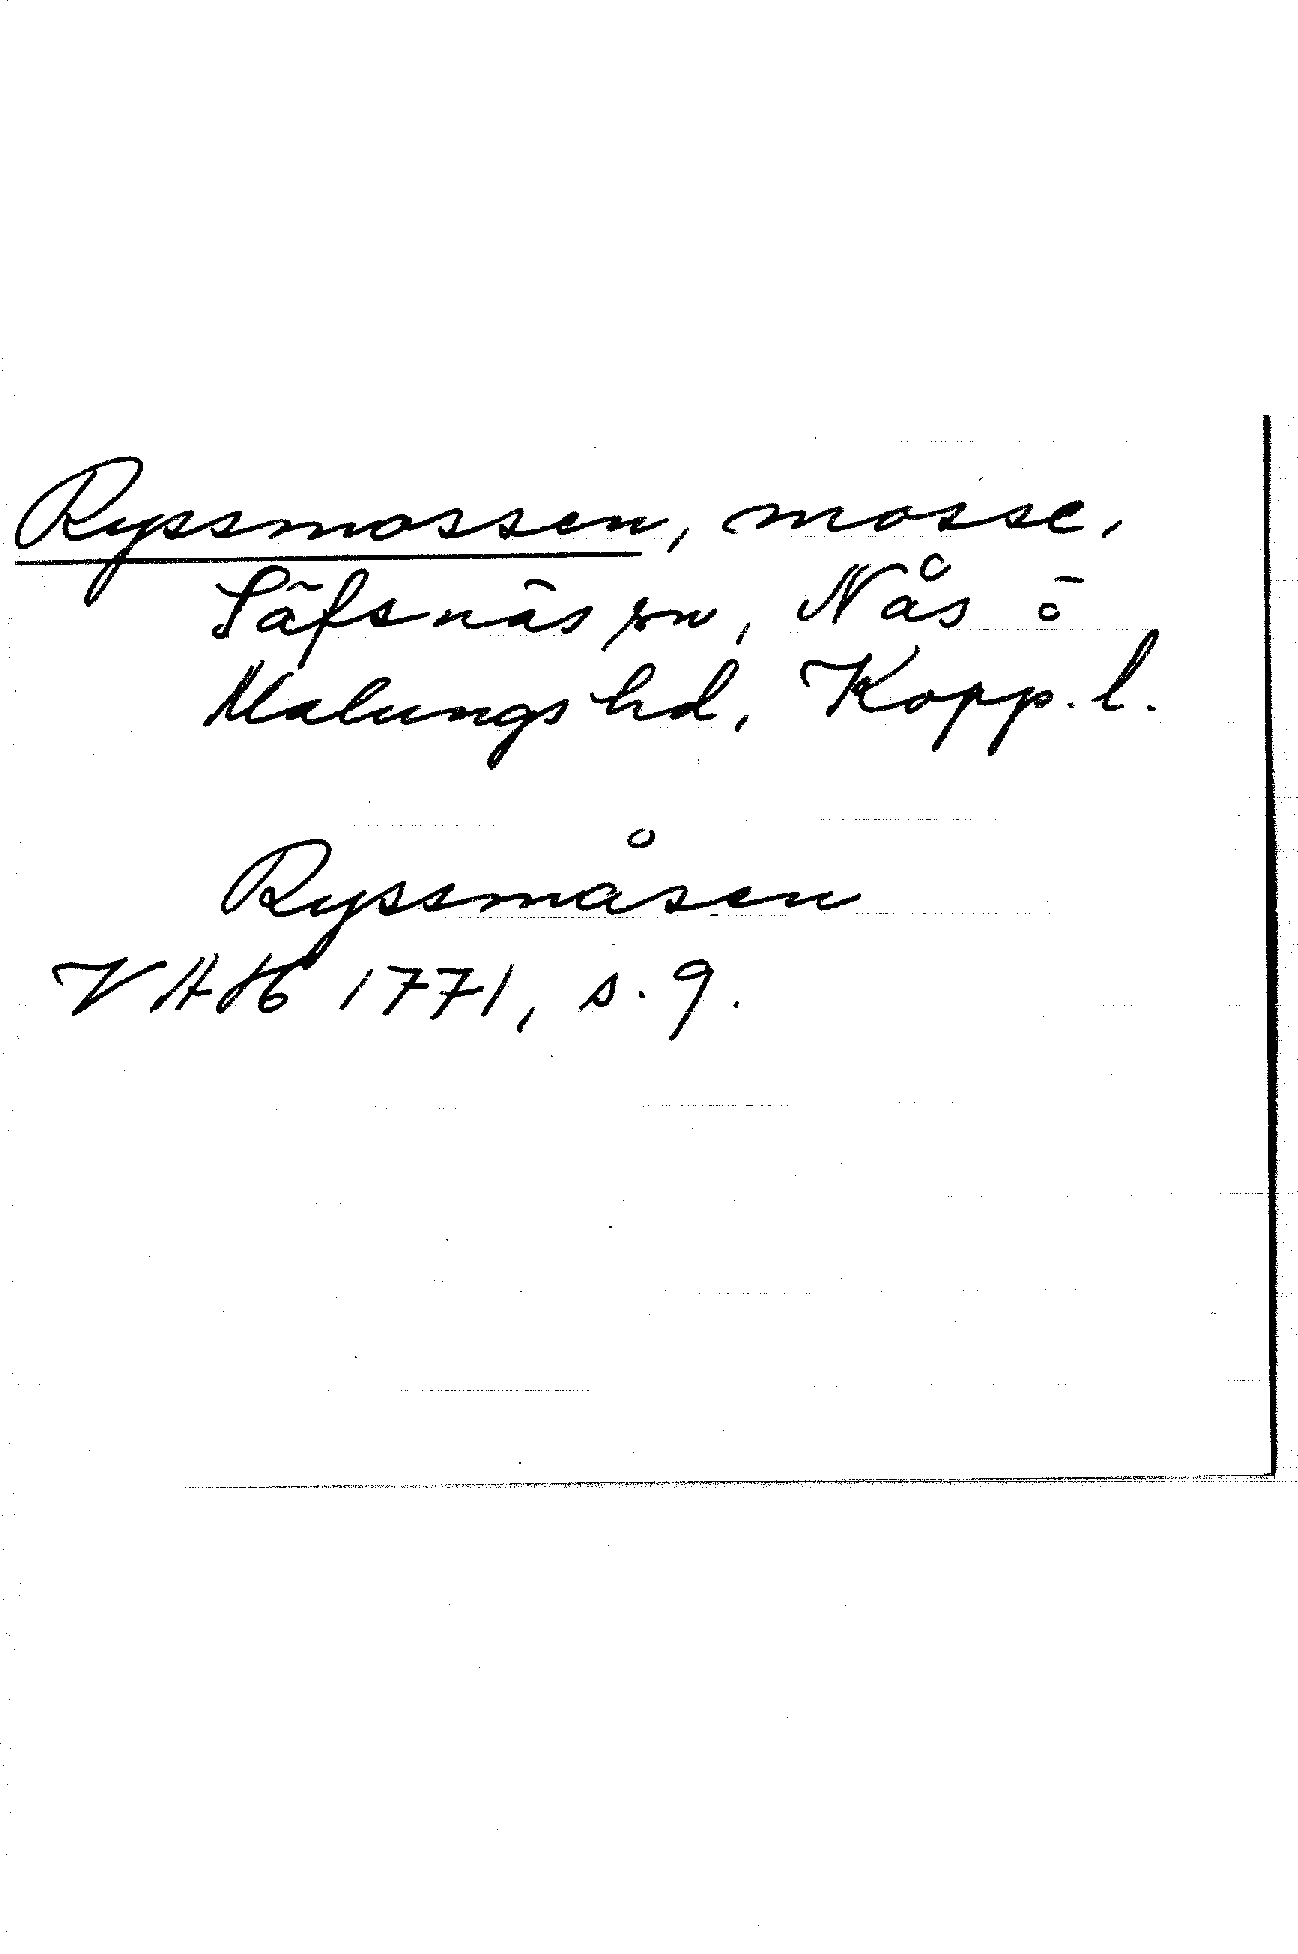 Ryssmossen, mosse,
Säfsnäs sn, Nås ö
Malungs hd, Kopp. l.
Ryssmåsen
VAH 1771, s. 9.